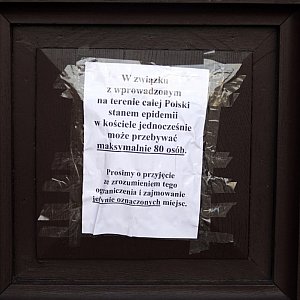 W związku
z wprowadzonym
na terenie całej Polski
stanem epidemii
w kościele jednocześnie
może przebywać
maksymalnie 80 osób.
Prosimy o przyjęcie
ze zrozumieniem tego
ograniczenia i zajmowanie
jedynie oznaczonych miejsc.